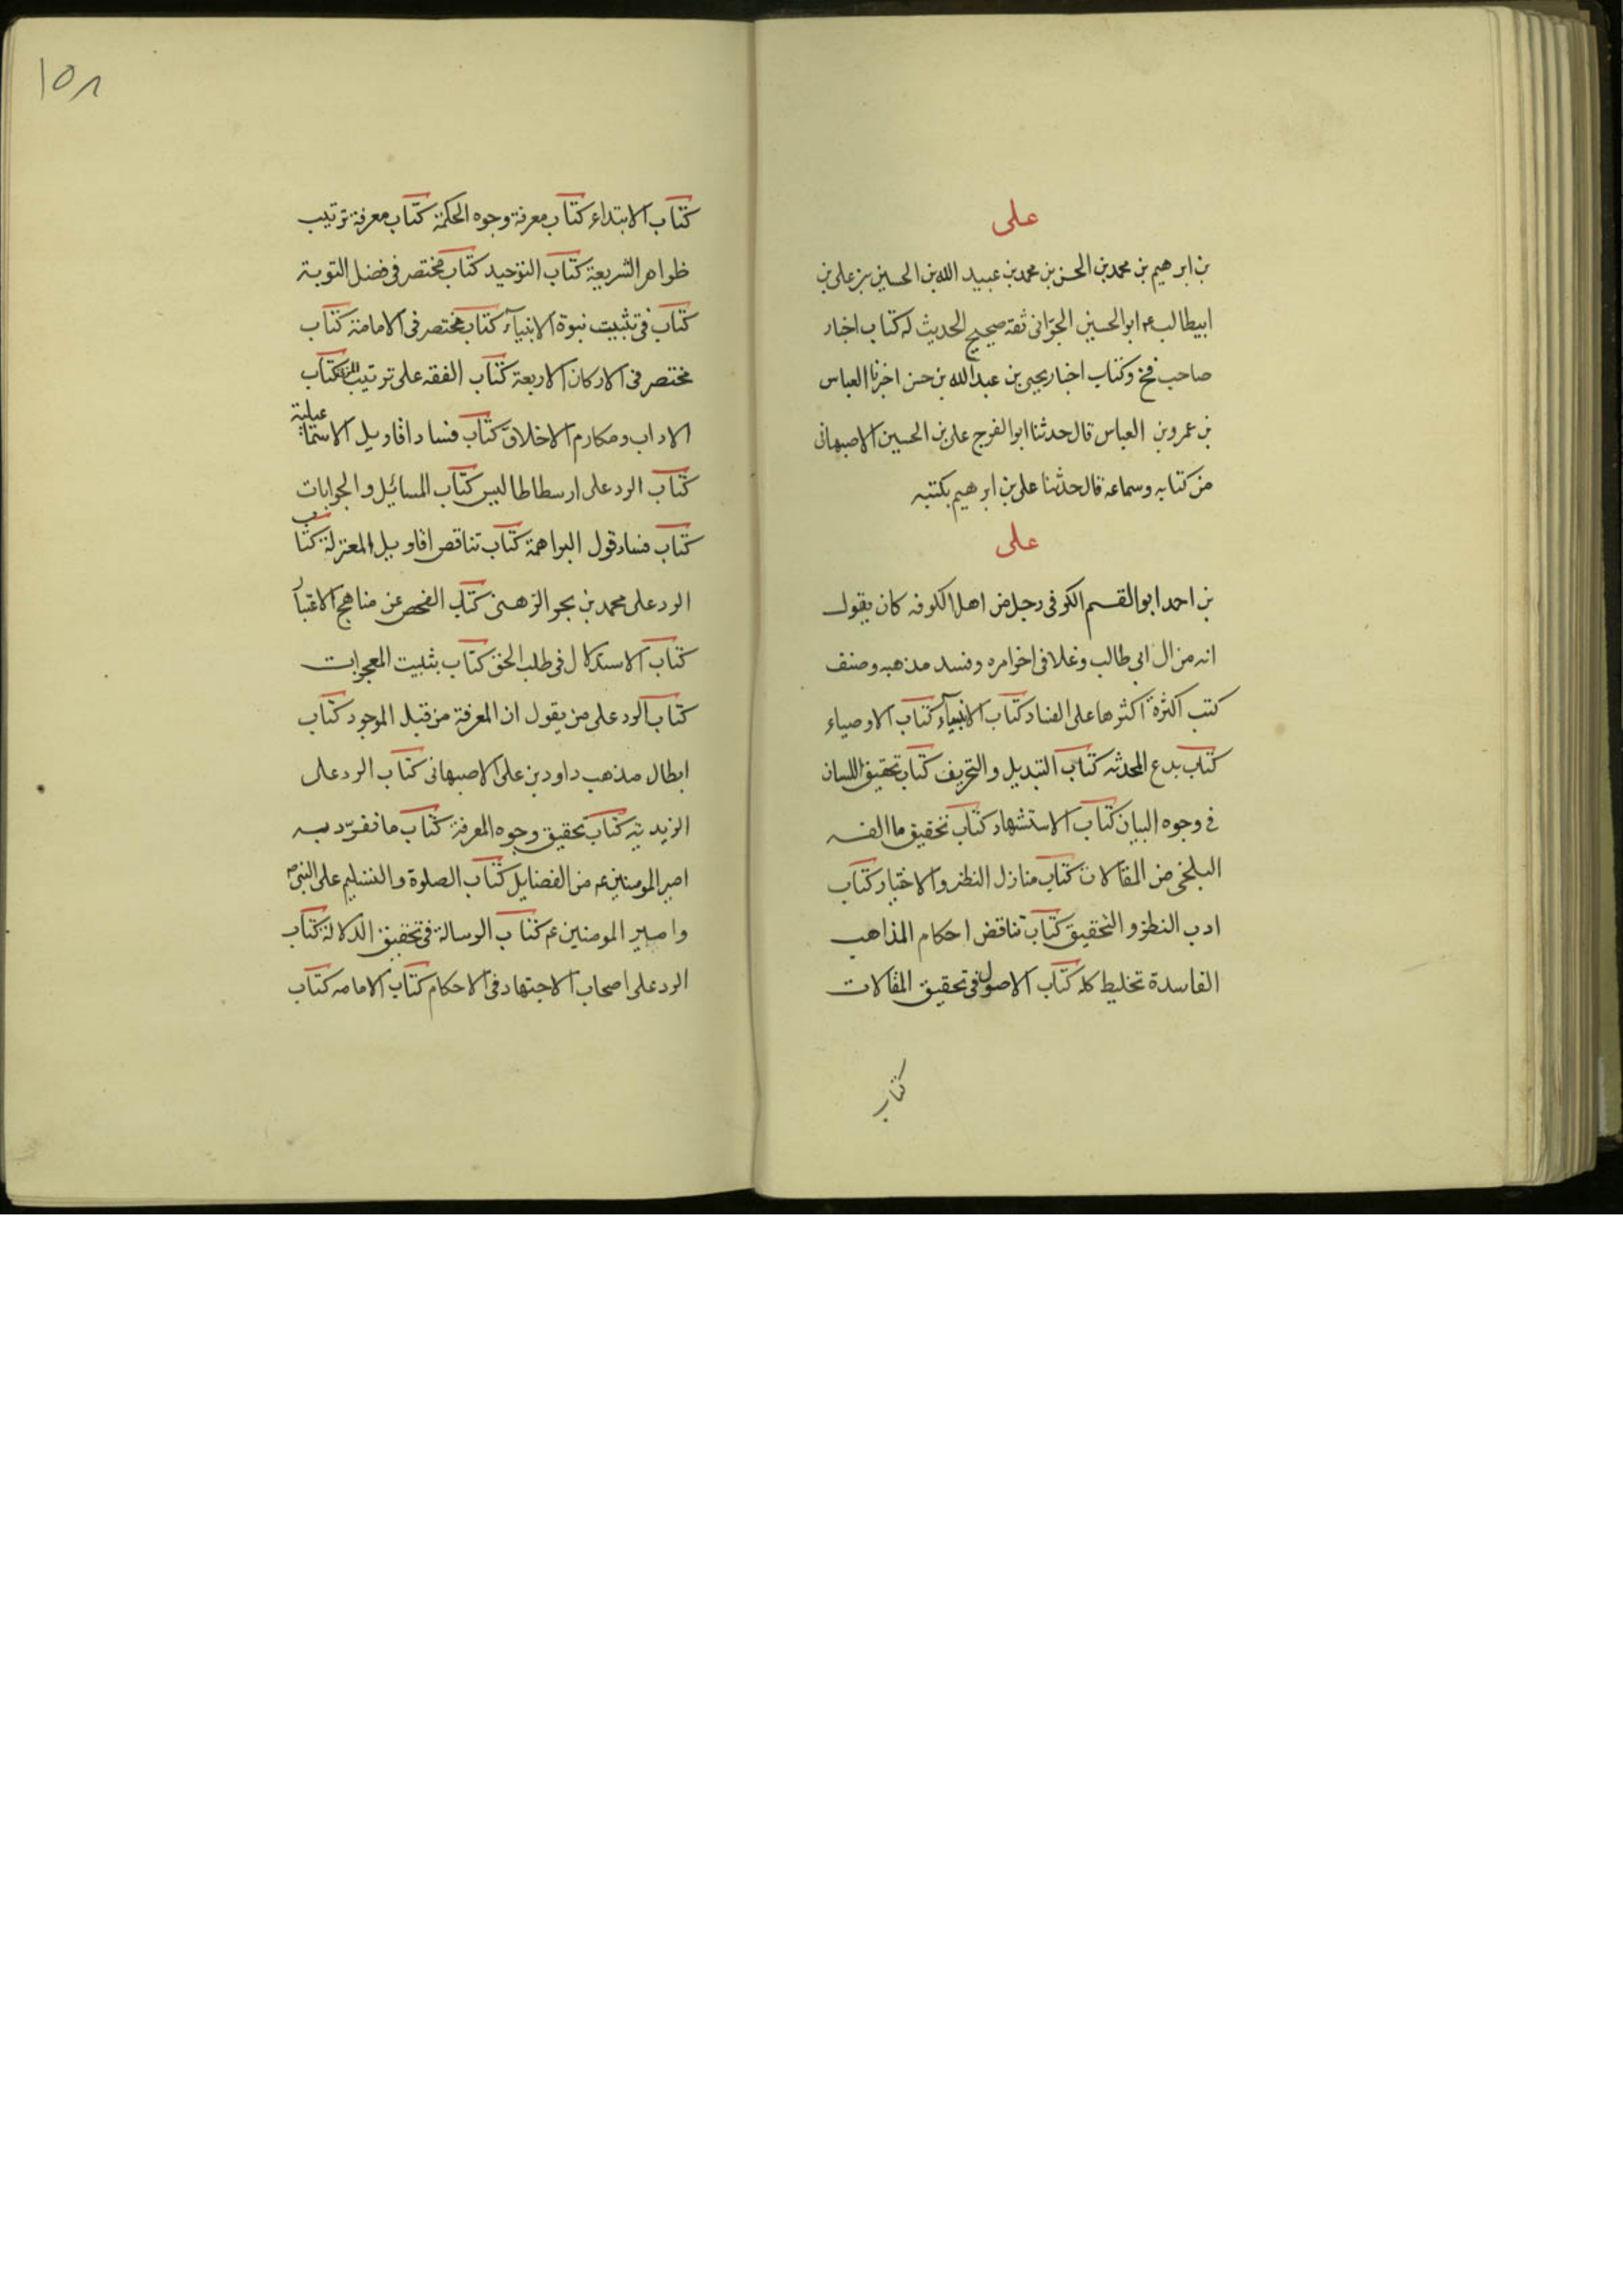 على
بن ابرهيم بن محمد بن الحسن بن محمد بن عبيد الله بن الحسين بن على بن
ابيطالب عم ابو الحسين الجوّانى ثقة صحيح الحديث له كتاب اخبار
صاحب فخ وكتاب اخبار يحيى بن عبد الله بن حسن اخبرنا العباس
بن عمر وبن العباس قال حدثنا ابو الفرج على بن الحسين الاصبهانى
من كتابه وسماعه قال حدثنا على بن ابرهيم بكتبه
على
بن احمد ابو القسم الكوفى رجل من اهل الكوفه كان يقول
انه من ال ابى طالب وغلا فى اخر امره وفسد مذهبه وصنف
كتب اكثرة اكثرها على الفساد كتاب الانبيآء كتاب الاوصياء
كتاب بدع المحدثه كتاب التبديل والتحريف كتاب تحقيق اللسان
فى وجوه البيان كتاب الاستشهاد كتاب تحقيق ما الفه
البلخى من المقالات كتاب منازل النظر والاختيار كتاب
ادب النظر والتحقيق كتاب تناقض احكام المذاهب
الفاسدة تخليط كله كتاب الاصول فى تحقيق المقالات
كتاب
١٥٨
كتاب الابتداء كتاب معرفة وجوه الحكمة كتاب معرفة ترتيب
ظواهر الشريعة كتاب التوحيد كتاب مختصر فى فضل التوبة
كتاب فى تثبيت نبوة الانبيآء كتاب مختصر فى الامامة كتاب
مختصر فى الاركان الاربعة كتاب الفقه على ترتيب المزنى كتاب
الاداب ومكارم الاخلاق كتاب فساد اقاويل الاسماعيلية
كتاب الرد على ارسطاطاليس كتاب المسائل والجوابات
كتاب فساد قول البراهمة كتاب تناقص اقاويل المعتزلة كتاب
الرد على محمد بن بحر الرهنى كتاب الفحص عن مناهج الاعتبار
كتاب الاستدلال فى طلب الحق كتاب تثبيت المعجزات
كتاب الرد على من يقول ان المعرفة من قبل الموجود كتاب
ابطال مذهب داود بن على الاصبهانى كتاب الرد على
الزيديه كتاب تحقيق وجوه المعرفة كتاب ما تفرّد به
امير المومنين عم من الفضايل كتاب الصلوة والتسليم على النبى ص
وامير المومنين عم كتاب الرسالة فى تحقيق الدلالة كتاب
الرد على اصحاب الاجتهاد فى الاحكام كتاب الامامه كتاب